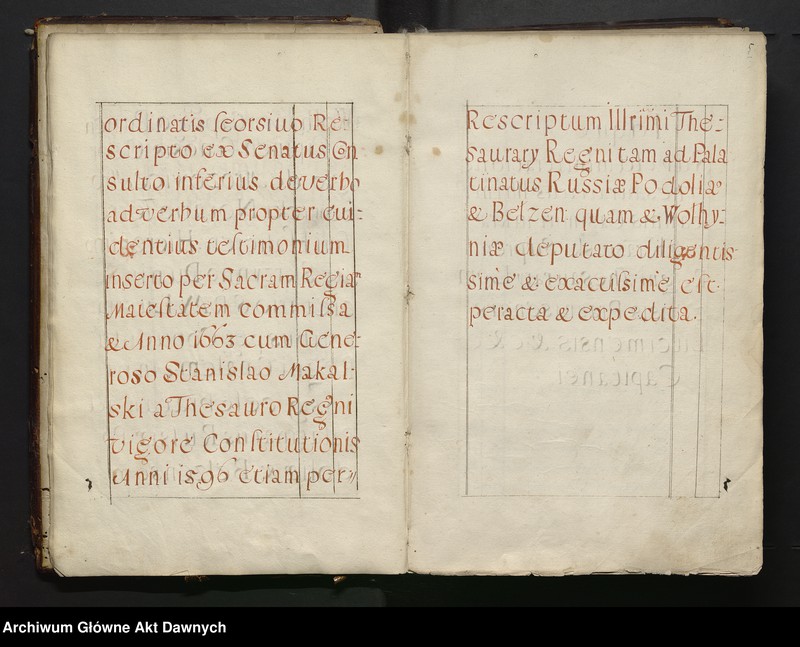 ordinatis seorsivo Re-
scripto ex Senatus Con
sulto inferius de verbo
ad verbum propter eui-
dentius testimonium
inserto per Sacram Regia
Maiestatem commissa
& Anno 1663 cum Gene-
roso Stanislao Makal-
ski a Thesauro Regni
vigore Constitutionis
Anni 1596 etiam per
5
Rescriptum Illrimi The-
saurary Regni tam ad Pala
tinatus Russiæ Podoliæ
& Belzen quam & Wolhy-
niæ deputato diligentis
sime & exactissime est
peracta & expedita.
Archiwum Główne Akt Dawnych